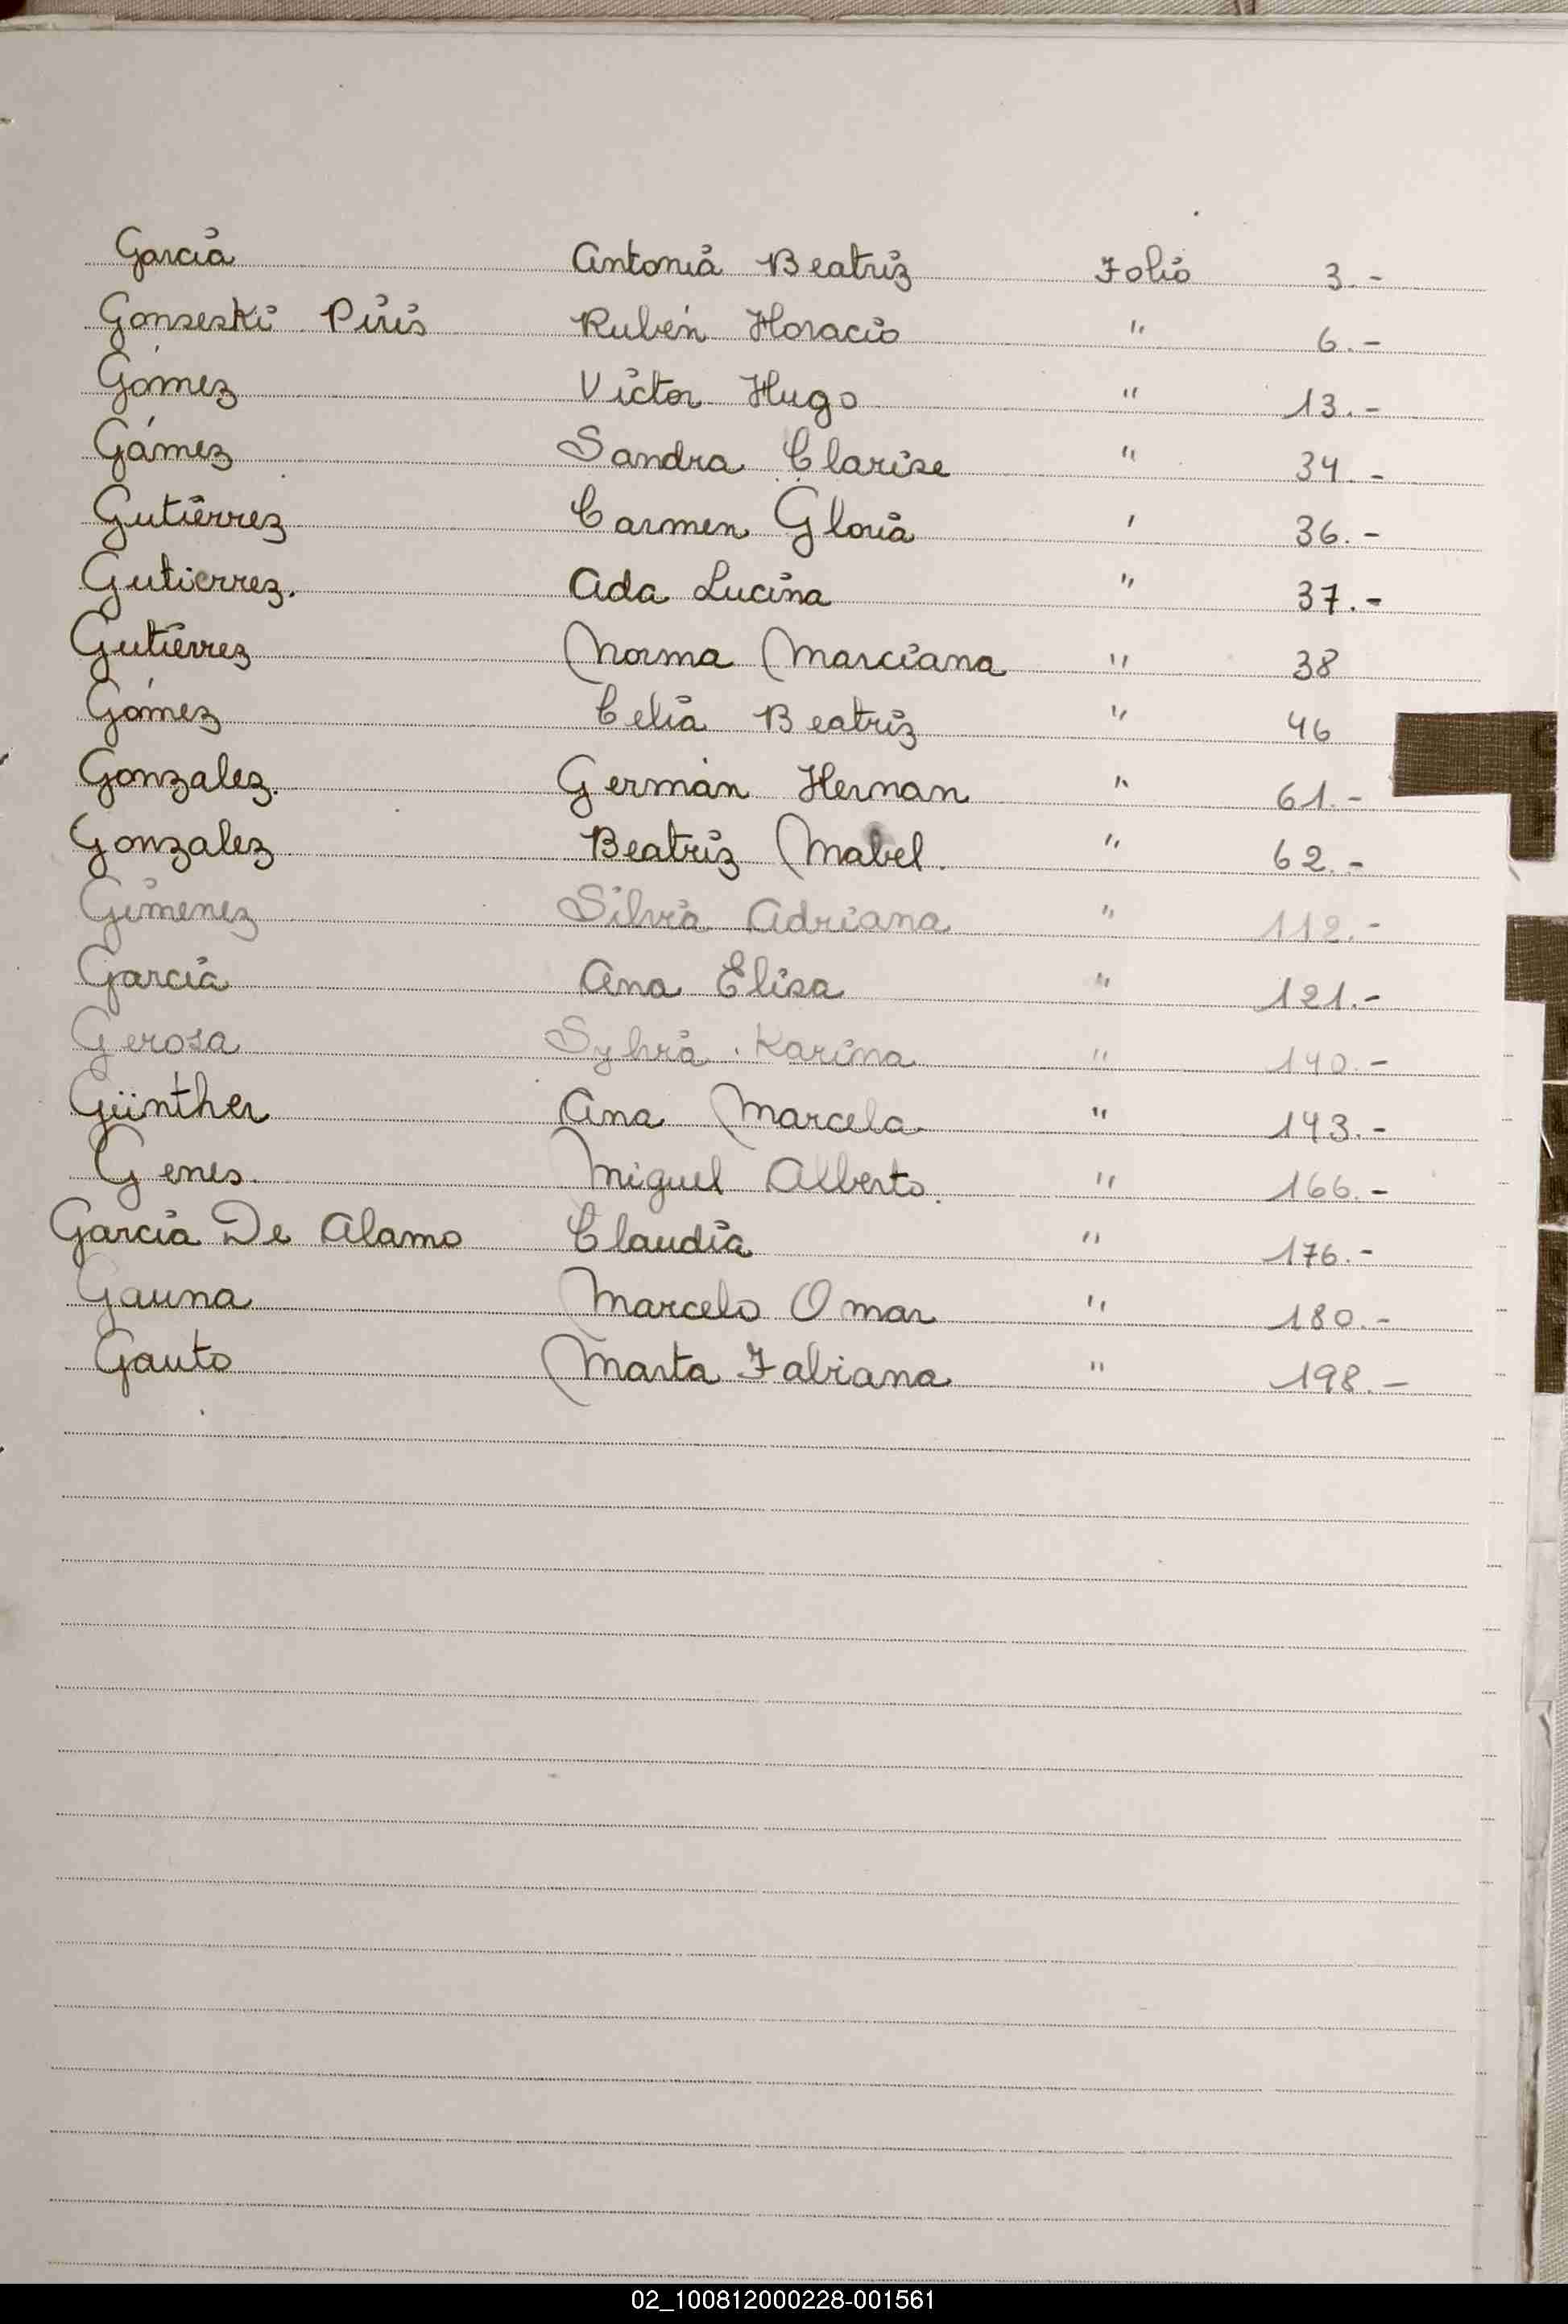 Garcia Antonia Beatriz Folio 3.-
Gonseski Piris Rubén Horacio " 6.-
Gómez Victor Hugo " 13.-
Gámez Sandra Clarise " 34.-
Gutiérrez Carmen Gloria ' 36.-
Gutierrez. Ada Lucina " 37.-
Gutiérrez Norma Marciana " 38
Gómez Celia Beatriz " 46
Gonzalez. Germán Hernan " 61.-
Gonzalez Beatriz Mabel. " 62.-
Gimenez Silvia Adriana " 112.-
Garcia Ana Elisa " 121.-
Gerosa Sylvia Karina " 140.-
Günther Ana Marcela " 143.-
Genes. Miguel Alberto. " 166.-
Garcia De Alamo Claudia " 176.-
Gauna Marcelo Omar " 180.-
Gauto Marta Fabiana " 198.-
02_100812000228-001561